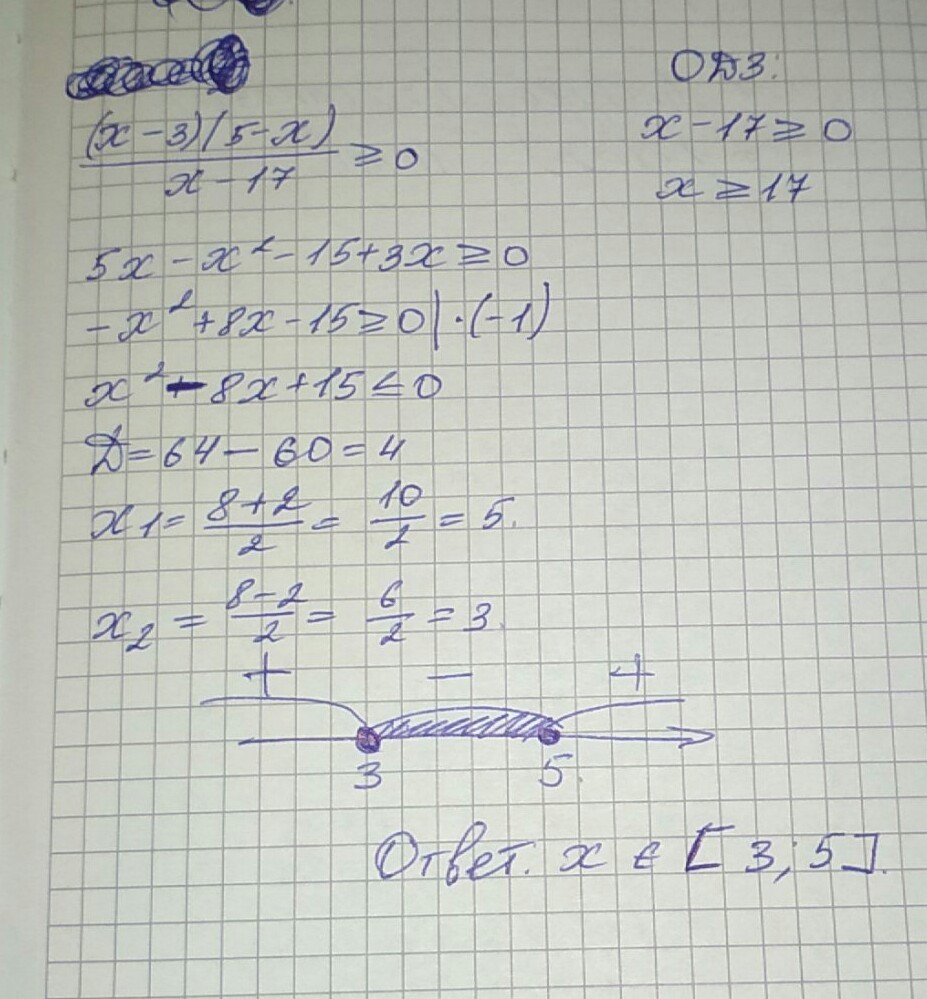 ОДЗ:
x - 17 ≥ 0
x ≥ 17
(x - 3)(5 - x)
x - 17
≥ 0
5x - x² - 15 + 3x ≥ 0
-x² + 8x - 15 ≥ 0 | · (-1)
x² - 8x + 15 ≤ 0
D = 64 - 60 = 4
x1 = 8 + 2 / 2 = 10 / 2 = 5.
x2 = 8 - 2 / 2 = 6 / 2 = 3.
+ − +
3 5
Ответ. x ∈ [3; 5].